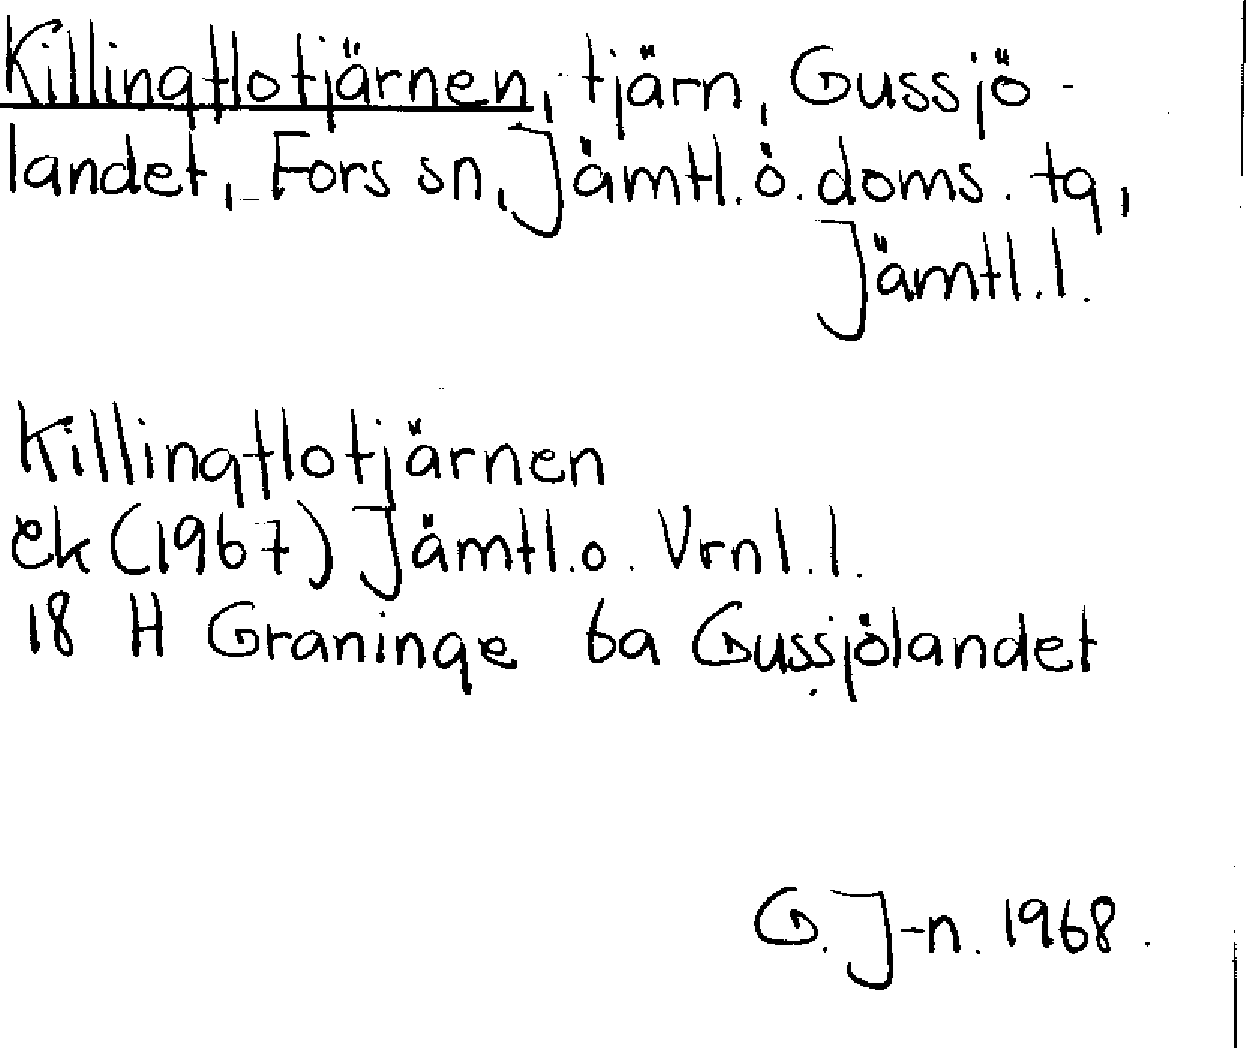 Killingflotjärnen, tjärn, Gussjö-
landet, Fors sn, Jämtl. ö. doms. tg,
Jämtl. l.
Killingflotjärnen
ek (1967) Jämtl. o. Vrnl. l.
18 H Graninge 6a Gussjölandet
G. J-n. 1968.